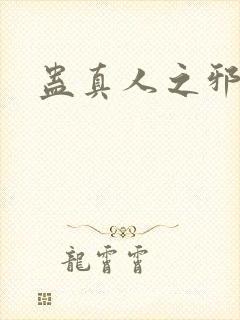 蛊真人之邪
龍霄霄